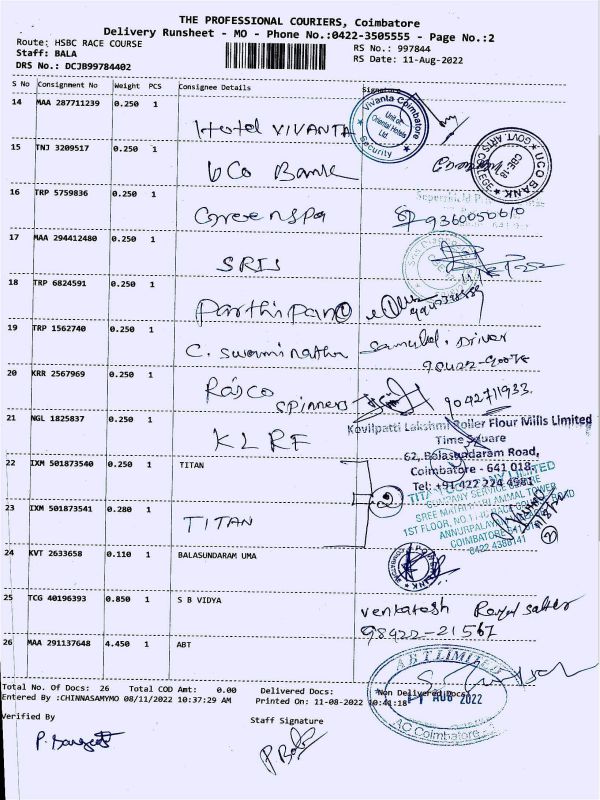 THE PROFESSIONAL COURIERS, Coimbatore
Delivery Runsheet - MO - Phone No.:0422-3505555 - Page No.:2
Route: HSBC RACE COURSE
RS No.: 997844
Staff: BALA
RS Date: 11-Aug-2022
DRS No.: DCJB99784402
S No Consignment No Weight PCS Consignee Details Signature
14 MAA 287711239 0.250 1
Hotel VIVANTA
Vivanta Coimbatore
Unit of
Oriental Hotels
Ltd.
Security
15 TNJ 3209517 0.250 1
UCO Bank
UCO BANK
GOVT. ARTS COLLEGE
CBE-18
16 TRP 5759836 0.250 1
Greenspa
9360050610
17 MAA 294412480 0.250 1
SRIS
18 TRP 6824591 0.250 1
Parthipan
19 TRP 1562740 0.250 1
C. Swaminathan
Samuel. Driver
20 KRR 2567969 0.250 1
Rasco
Spinners
9042711933.
21 NGL 1825837 0.250 1
KLRF
Kovilpatti Lakshmi Roller Flour Mills Limited
Time Square
62, Balasundaram Road,
Coimbatore - 641 018.
Tel: +91 422 224 4981
22 IXM 501873540 0.250 1 TITAN
TITAN COMPANY LIMITED
COMPANY SERVICE CENTRE
23 IXM 501873541 0.280 1
TITAN
0422 4388141
24 KVT 2633658 0.110 1 BALASUNDARAM UMA
25 TCG 40196393 0.850 1 S B VIDYA
Venkatesh
98422-21567
26 MAA 291137648 4.450 1 ABT
ABT LIMITED
AUG 2022
Coimbatore
Total No. Of Docs: 26 Total COD Amt: 0.00 Delivered Docs: Non Delivered Docs:
Entered By :CHINNASAMYMO 08/11/2022 10:37:29 AM Printed On: 11-08-2022 10:41:18
Verified By
Staff Signature